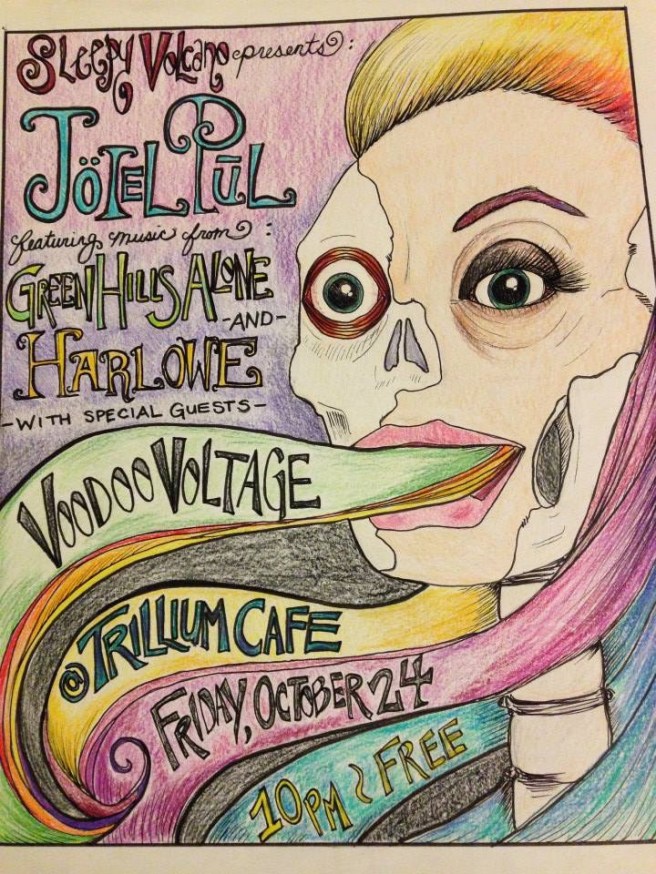 Sleepy Volcano presents:
JÖTEL PŪL
featuring music from:
GREEN HILLS ALONE
-AND-
HARLOWE
-WITH SPECIAL GUESTS-
VOODOO VOLTAGE
@ TRILLIUM CAFE
FRIDAY, OCTOBER 24
10PM ~ FREE